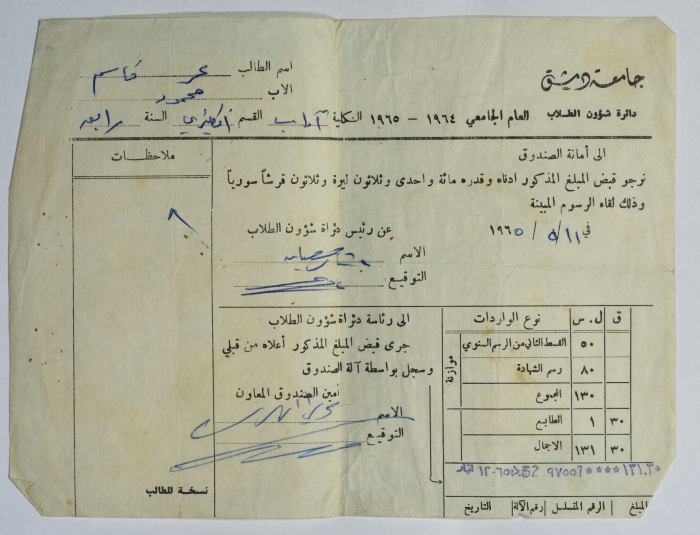 جامعة دمشق
دائرة شؤون الطلاب
اسم الطالب عمر قاسم
الاب محمود
العام الجامعي ١٩٦٤ - ١٩٦٥ الكلية آداب القسم انكليزي السنة رابعة
الى أمانة الصندوق
نرجو قبض المبلغ المذكور ادناه وقدره مائة واحدى وثلاثون ليرة وثلاثون قرشاً سورياً
وذلك لقاء الرسوم المبينة
في ١١/٥/١٩٦٥
عن رئيس دائرة شؤون الطلاب
الاسم
التوقيع
ملاحظات
نسخة للطالب
الى رئاسة دائرة شؤون الطلاب
جرى قبض المبلغ المذكور أعلاه من قبلي
وسجل بواسطة آلة الصندوق
أمين الصندوق المعاون
الاسم
التوقيع
ق ل.س نوع الواردات
موازنة
٥٠ القسط الثاني من الرسم السنوي
٨٠ رسم الشهادة
١٣٠ المجموع
٣٠ ١ الطابع
٣٠ ١٣١ الاجمال
****١٣١.٣٠
المبلغ الرقم المتسلسل رقم الآلة التاريخ